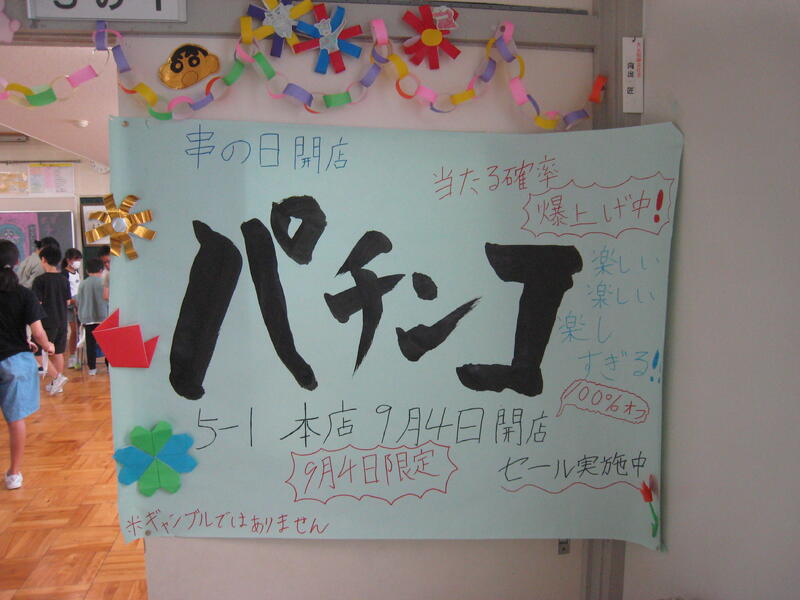 5の1
串の日開店
当たる確率
爆上げ中!
パチンコ
楽しい
楽しい
楽し
すぎる!!
100%オフ
5-1 本店 9月4日開店
9月4日限定
セール実施中
※ギャンブルではありません